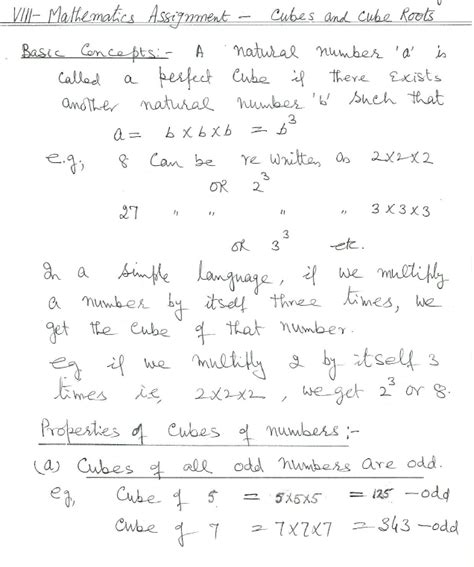 VIII- Mathematics Assignment - Cubes and Cube Roots
Basic Concepts:- A natural number 'a' is
called a perfect Cube if there Exists
another natural number 'b' such that
a = b x b x b = b³
e.g; 8 Can be re written as 2x2x2
OR 2³
27 " " " " 3 x 3 x 3
OR 3³ etc.
In a simple language, if we multiply
a number by itself three times, we
get the Cube of that number.
eg if we multiply 2 by itself 3
times i.e, 2x2x2, we get 2³ or 8.
Properties of Cubes of numbers:-
(a) Cubes of all odd numbers are odd.
eg, Cube of 5 = 5x5x5 = 125 - odd
Cube of 7 = 7x7x7 = 343 - odd